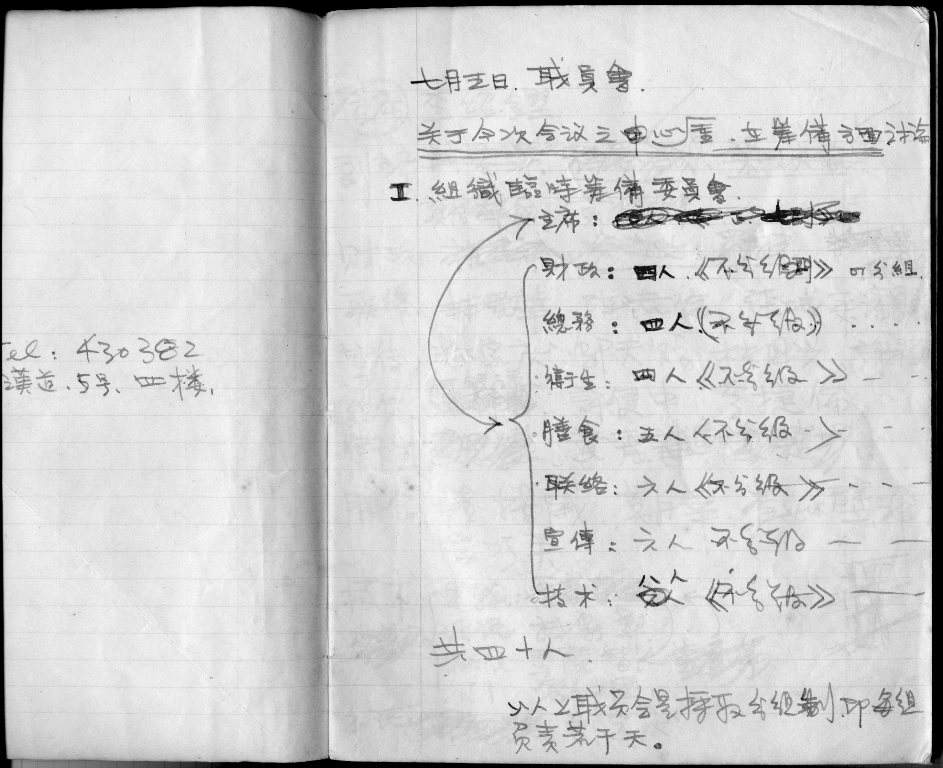 Tel: 430382
漢道.5号、四楼,
七月五日. 职員會.
关于今次会议之中心[重]. 在筹備方面討論
I. 組織臨時筹備委員會.
主席:
財政: 四人.《不分级别》 可分組.
總務: 四人.《不分级》 . . . .
衛生: 四人《不分级》 — —
膳食: 五人《不分级 》- - -
联络: 六人《不分级》 - - -
宣傳: 六人 不分级 — —
技术: 八人《不分级》 ——
共四十人.
以上职员会是採取分组制.即每组
负责若干天。